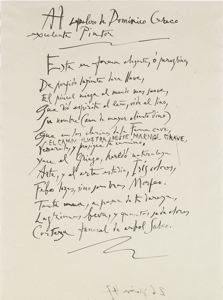 Al sepulcro de Dominico Greco
excelente Pintor
Esta en forma elegante, o peregrino,
De porfido luciente dura llave,
El pincel niega al mundo mas suave,
Que dio espiritu al leño, vida al lino,
Su nombre, (aun de mayor aliento dino
Que en los clarines de la Fama cave,
EL CAMPO ILUSTRA DE ESTE MARMOL GRAVE,
Venerarlo, y prosigue tu camino,
Yace el Griego, heredó naturaleza
Arte, y el arte estudio, Iris colores,
Febo luzes, sino sombras Morfeo.
Tanta urna, a pesar de su dureza,
Lagrimas beva, y quantos suda olores
Corteza funeral de arbol Sabeo.